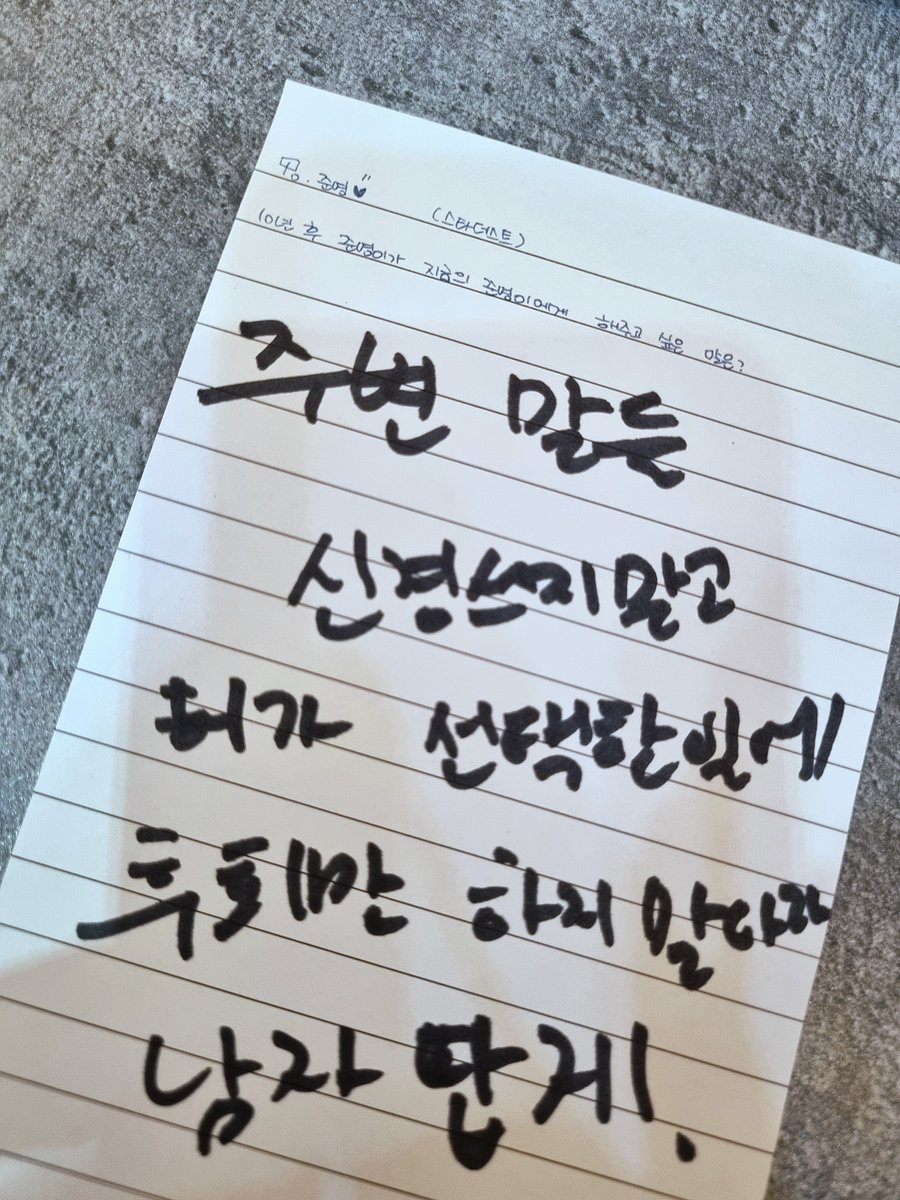 To. 준영♥
(스타더스트)
10년 후 준영이가 지금의 준영이에게 해주고 싶은 말은?
주변 말들
신경쓰지말고
허가 선택한일에
후회만 하지 말아라
남자 단계!